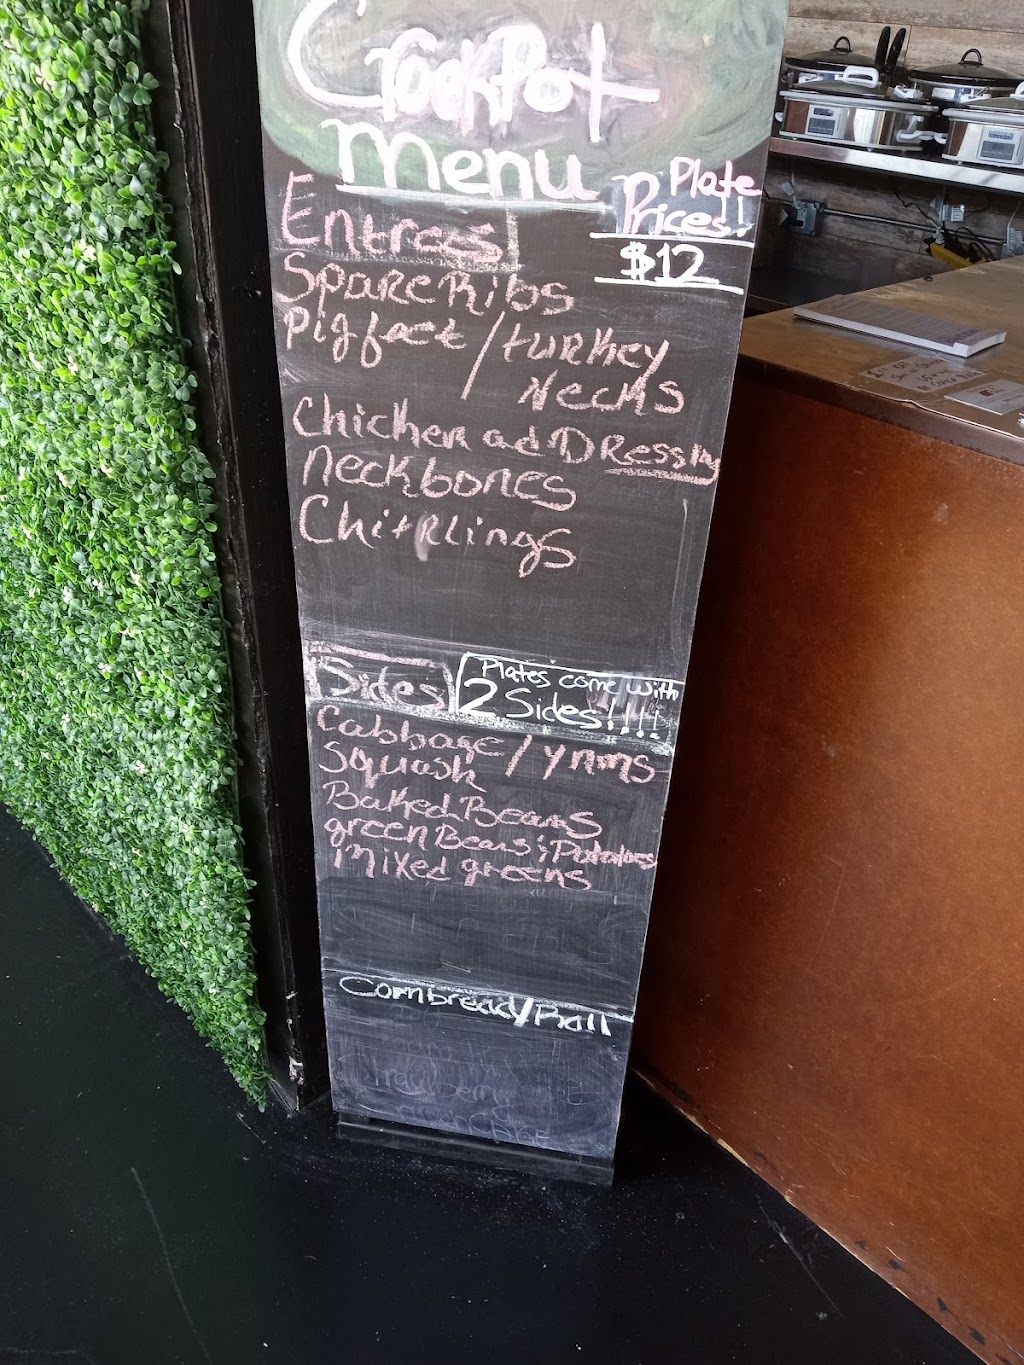 CrockPot
Menu
Plate
Prices!
$12
Entrees
Spare Ribs
Pigfeet/turkey
Necks
Chicken ad Dressing
Neckbones
Chitrlings
Sides
Plates come with
2 Sides!!!!
Cabbage/Yams
Squash
Baked Beans
green Beans & Potatoes
Mixed greens
Cornbread/Roll